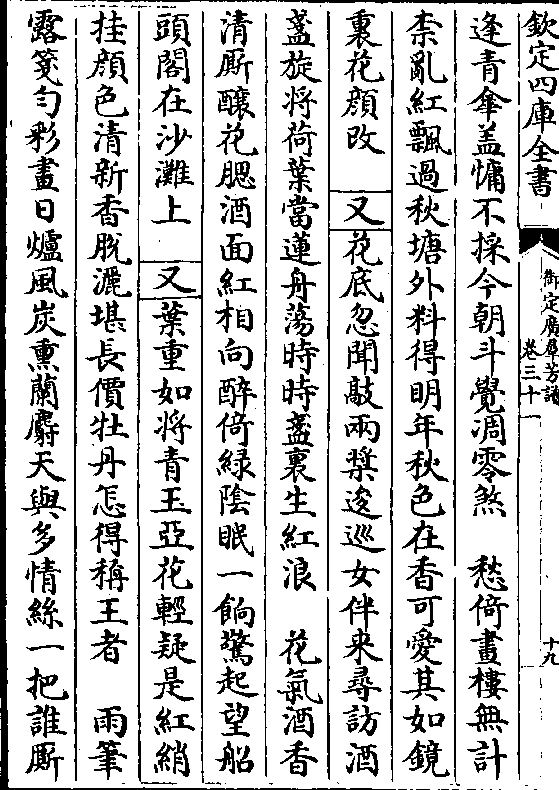 欽定四庫全書
御定廣羣芳譜
卷三十
十九
逢青傘盖慵不採今朝斗覺凋零煞　愁倚畫樓無計
柰亂紅飄過秋塘外料得明年秋色在香可愛其如鏡
裏花顔改　又　花底忽聞敲兩槳逡巡女伴來尋訪酒
盞旋將荷葉當蓮舟蕩時時盞裏生紅浪　花氣酒香
清厮釀花腮酒面紅相向醉倚緑陰眠一餉驚起望船
頭閣在沙灘上　又　葉重如將青玉亞花輕疑是紅綃
挂顔色清新香脱灑堪長價牡丹怎得稱王者　雨筆
露箋匀彩畫日爐風炭熏蘭麝天與多情絲一把誰厮